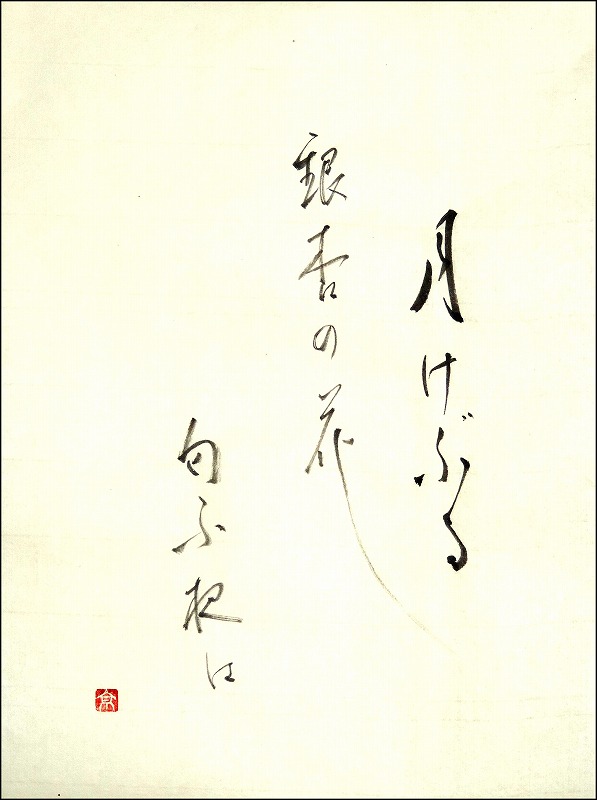 月けぶる
銀杏の花
匂ふ夜は